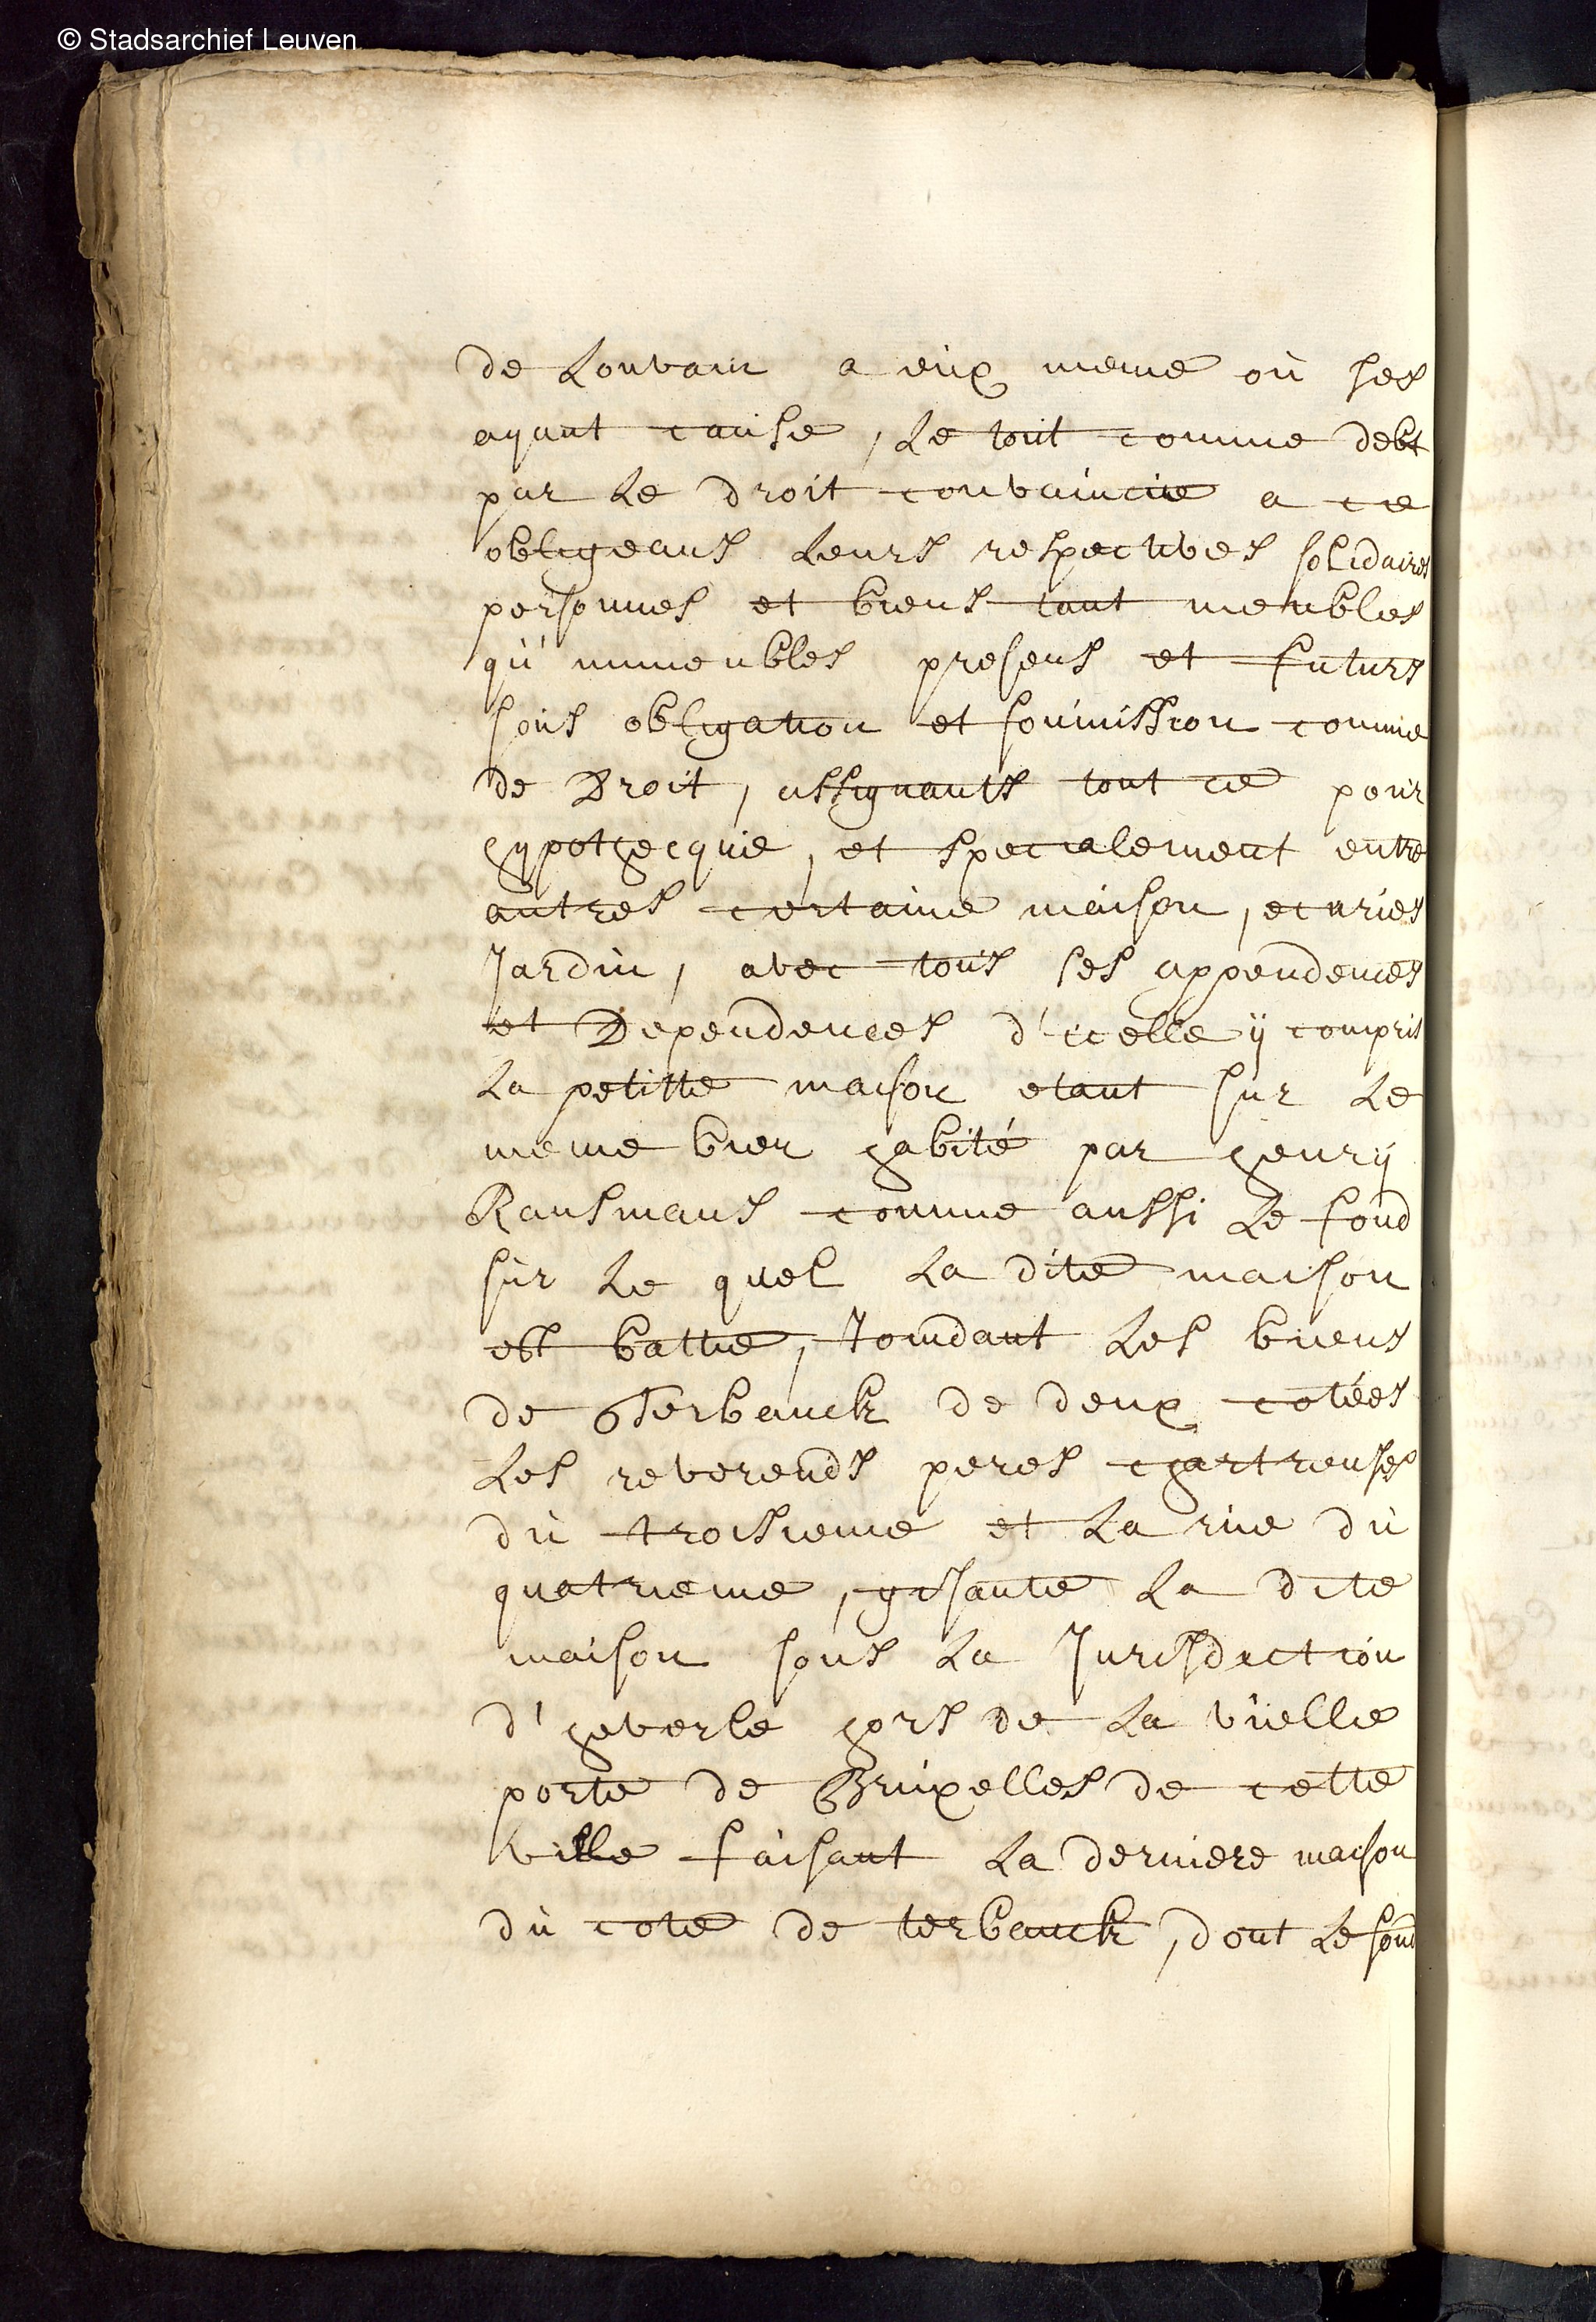 © Stadsarchief Leuven
de Louvain a eux meme où ses
ayant cause, Le tout comme debt
par Le droit convaincue a ce
obligeans Leurs respectives solidaires
personnes et biens tant meubles
qu'immeubles presens et futurs
sous obligation et soumission comme
de Droit, assignants tout ce pour
hypothecque, et specialement entre
autres certaine maison, ecuries
Jardin, avec tous ses appendences
et Dependences d'icelle ÿ compris
La petitte maison etant sur Le
meme bien habité par henrÿ
Ransmans comme aussi Le fond
sur Le quel La dite maison
est battie, Joindant Les biens
de Terbanck de deux cotées
Les reverends peres chartreuses
du troisieme et La rue du
quatrieme, gisante La dite
maison sous La Jurisdiction
d'heverle hors de La vielle
porte de Bruxelles de cette
ville faisant La derniere maison
du cote de terbanck, dont Le fond